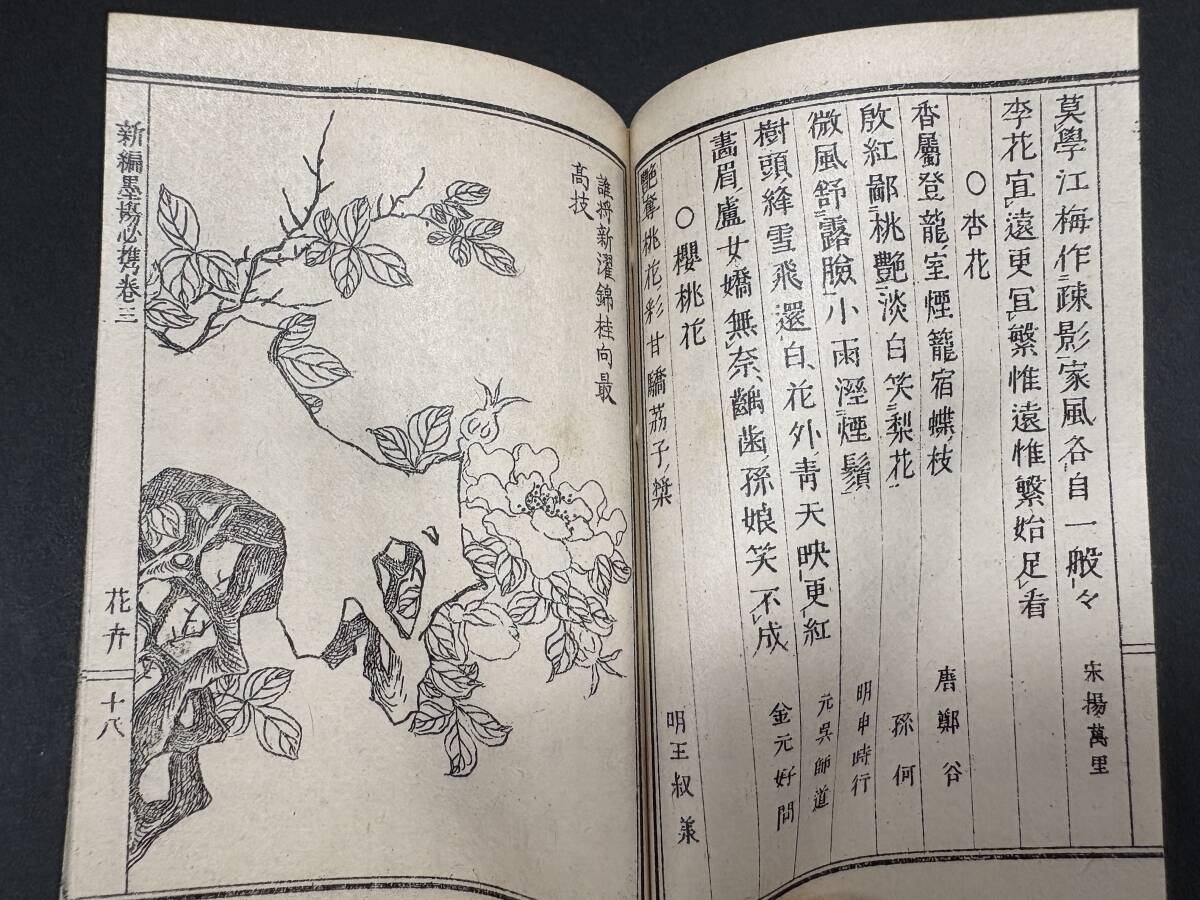 莫學江梅作疎影家風各自一般々 宋楊萬里
李花宜遠更冝繁惟遠惟繁始足看
〇杏花
香屬登龍室煙籠宿蝶枝 唐鄭谷
殷紅鄙桃艷淡白笑梨花 孫何
微風舒露臉小雨溼煙鬚 明申時行
樹頭絳雪飛還白花外靑天映更紅 元吳師道
畵眉盧女嬌無奈齲齒孫娘笑不成 金元好問
〇櫻桃花
艷奪桃花彩甘驕荔子漿 明王叔承
誰將新濯錦桂向最
高技
新編墨場必携卷三
花卉
十八